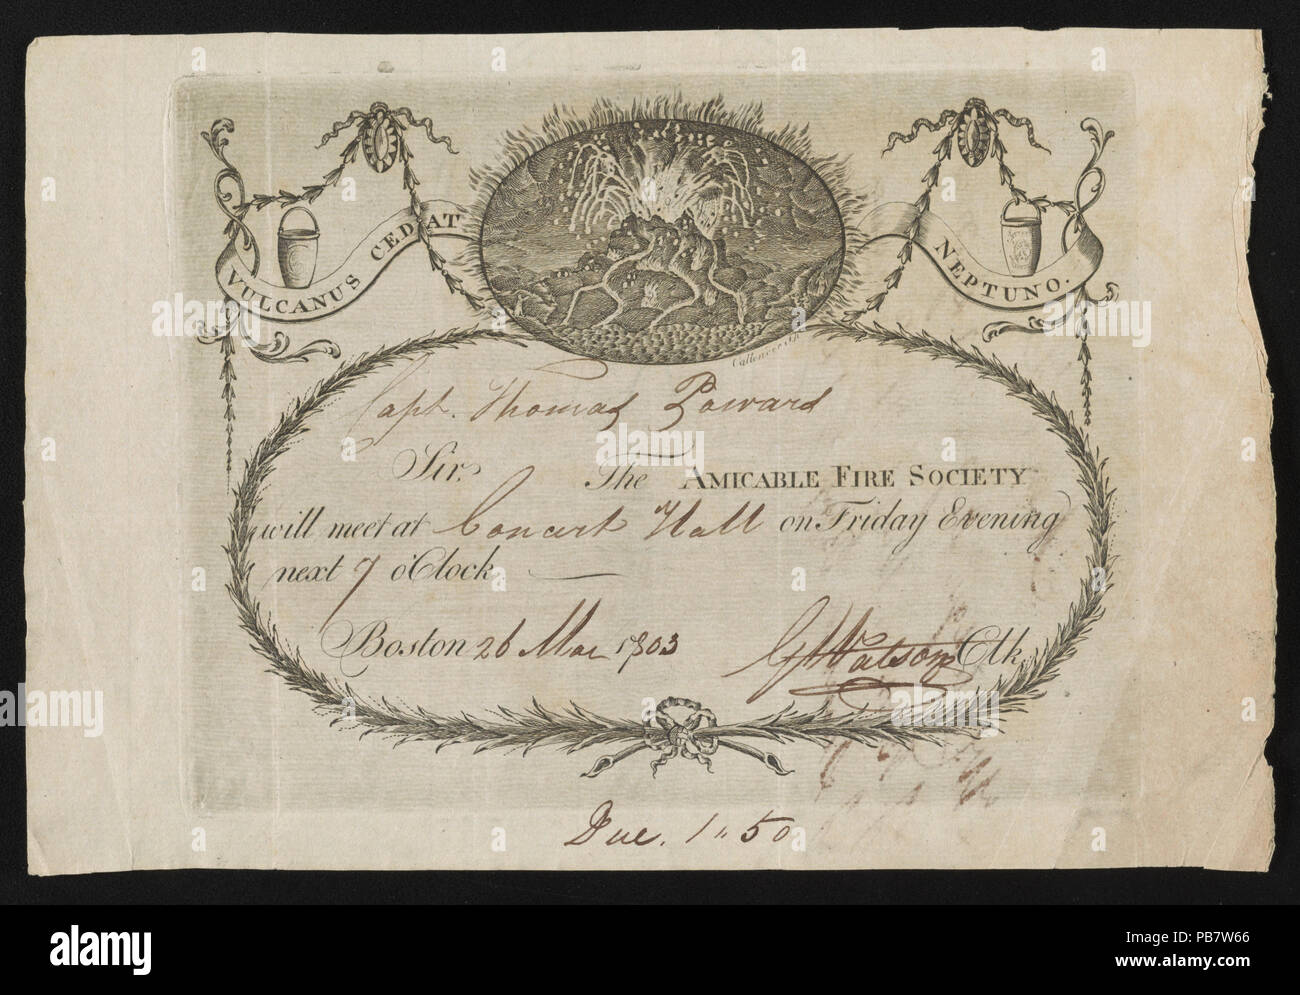 VULCANUS CEDAT NEPTUNO.
Callender sc
Capt. Thomas
Sir, The AMICABLE FIRE SOCIETY
will meet at Concert Hall on Friday Evening
next 7 o'Clock
Boston 26 Mar 1803 Watson Clk
Due. 1"50
alamy
Image ID: PB7W66
www.alamy.com